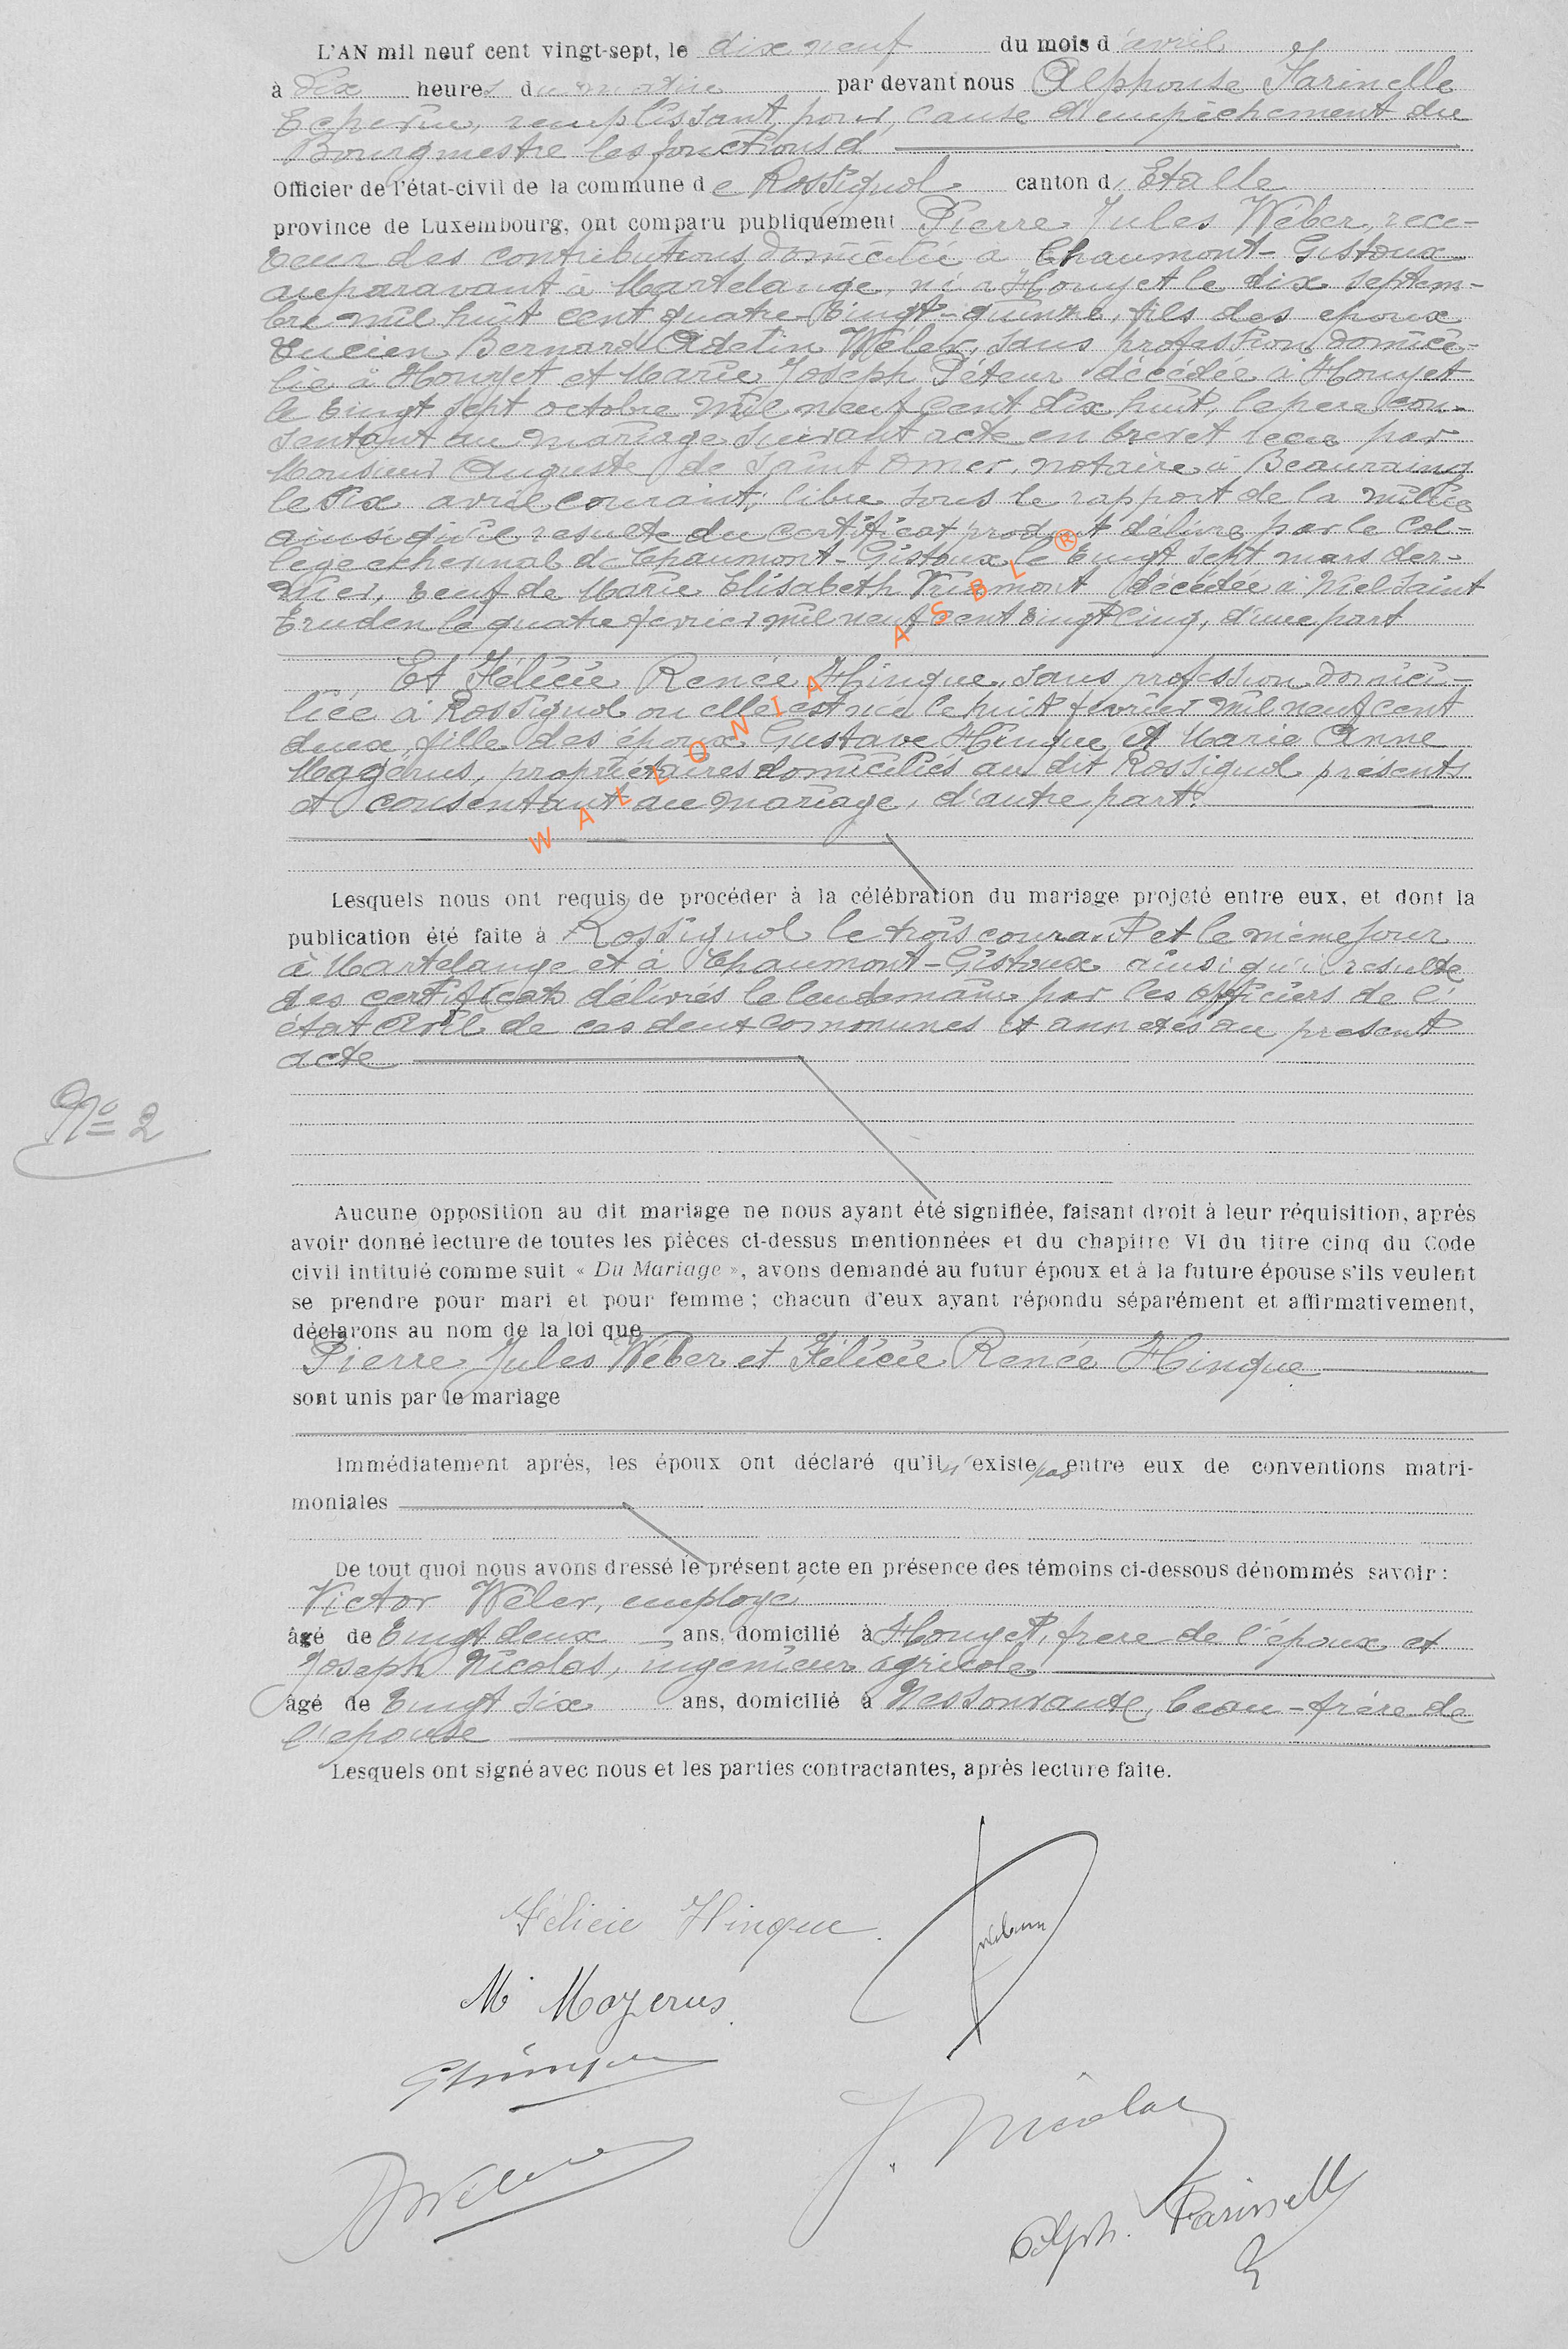 L'AN mil neuf cent vingt-sept, le dix neuf du mois d'avril
à dix heures du matin par devant nous Alphonse Farinelle
Echevin, remplissant pour cause d'empêchement du
Bourgmestre les fonctions d
Officier de l'état-civil de la commune de Rossignol canton d'Etalle
province de Luxembourg, ont comparu publiquement Pierre Jules Wéber, rece-
veur des contributions domicilié à Chaumont-Gistoux
auparavant à Martelange, né à Houyet le dix septem-
bre mil huit cent quatre-vingt-quinze, fils des époux
Lucien Bernard Adelin Wéber, sans profession domici-
lié à Houyet et Marie Joseph Péteur décédée à Houyet
le vingt sept octobre mil neuf cent dix huit, le père con-
sentant au mariage suivant acte en brevet recu par
Monsieur Auguste de Saint Omer, notaire à Beauraing
le six avril courant; libre sous le rapport de la milice
ainsi qu'il resulte du certificat produit délivré par le Col-
lège echevinal de Chaumont-Gistoux le vingt sept mars der-
nier, veuf de Marie Elisabeth décédée à Niel Saint
Truden le quatre fevrier mil neuf cent vingt cinq, d'une part
Et Félicie Renée Hinque, sans profession domici-
liée à Rossignol ou elle est née le huit fevrier mil neuf cent
deux, fille des époux Gustave Hinque et Marie Anne
Magérus, propriétaires domiciliés au dit Rossignol présents
et consentant au mariage, d'autre part.
WALLONIA ASBL ®
Lesquels nous ont requis de procéder à la célébration du mariage projeté entre eux, et dont la
publication été faite à Rossignol le trois courant et le même jour
à Martelange et à Chaumont-Gistoux ainsi qu'il resulte
des certificats délivrés le lendemain par les officiers de l'
état civil de ces deux communes et annexés au présent
acte
N° 2
Aucune opposition au dit mariage ne nous ayant été signifiée, faisant droit à leur réquisition, après
avoir donné lecture de toutes les pièces ci-dessus mentionnées et du chapitre VI du titre cinq du Code
civil intitulé comme suit « Du Mariage », avons demandé au futur époux et à la future épouse s'ils veulent
se prendre pour mari et pour femme ; chacun d'eux ayant répondu séparément et affirmativement,
déclarons au nom de la loi que
Pierre Jules Wéber et Félicie Renée Hinque
sont unis par le mariage
Immédiatement après, les époux ont déclaré qu'il n'existe pas entre eux de conventions matri-
moniales
De tout quoi nous avons dressé le présent acte en présence des témoins ci-dessous dénommés savoir :
Victor Wéber, employé
âgé de vingt deux ans, domicilié à Houyet, frère de l'époux et
Joseph Nicolas, ingénieur agricole
âgé de vingt six ans, domicilié à beau-frère de
l'epouse
Lesquels ont signé avec nous et les parties contractantes, après lecture faite.
Félicie Hinque
M. Mazerus
GHinque
J. Nicolas
Alph. Farinelle